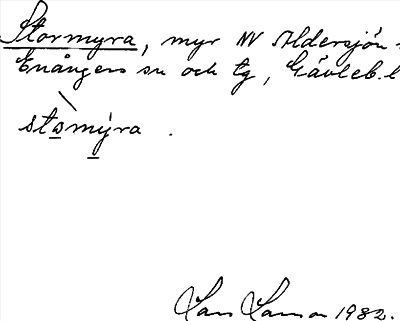 Stormyra, myr NV Åldersjön
Enångers sn och tg, Gävleb. l
sto̲mýra .
Lars Larson 1982.